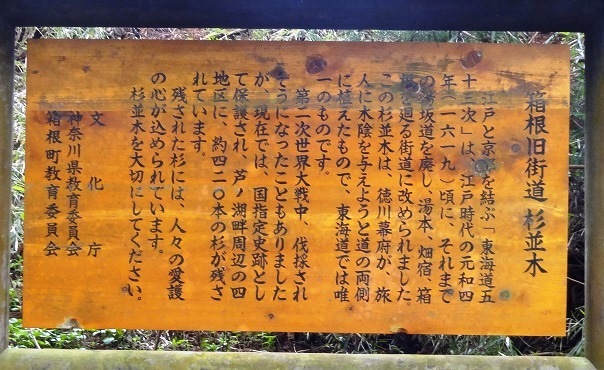 箱根旧街道 杉並木
江戸と京都を結ぶ「東海道五
十三次」は、江戸時代の元和四
年（一六一九）頃に、それまで
の湯坂道を廃し、湯本、畑宿、箱
根を廻る街道に改められました。
この杉並木は、徳川幕府が、旅
人に木陰を与えようと道の両側
に植えたもので、東海道では唯
一のものです。
第一次世界大戦中、伐採され
そうになったこともありました
が、現在では、国指定史跡とし
て保護され、芦ノ湖畔周辺の四
地区に、約四二〇本の杉が残さ
れています。
残された杉には、人々の愛護
の心が込められています。
杉並木を大切にしてください。
文化庁
神奈川県教育委員会
箱根町教育委員会